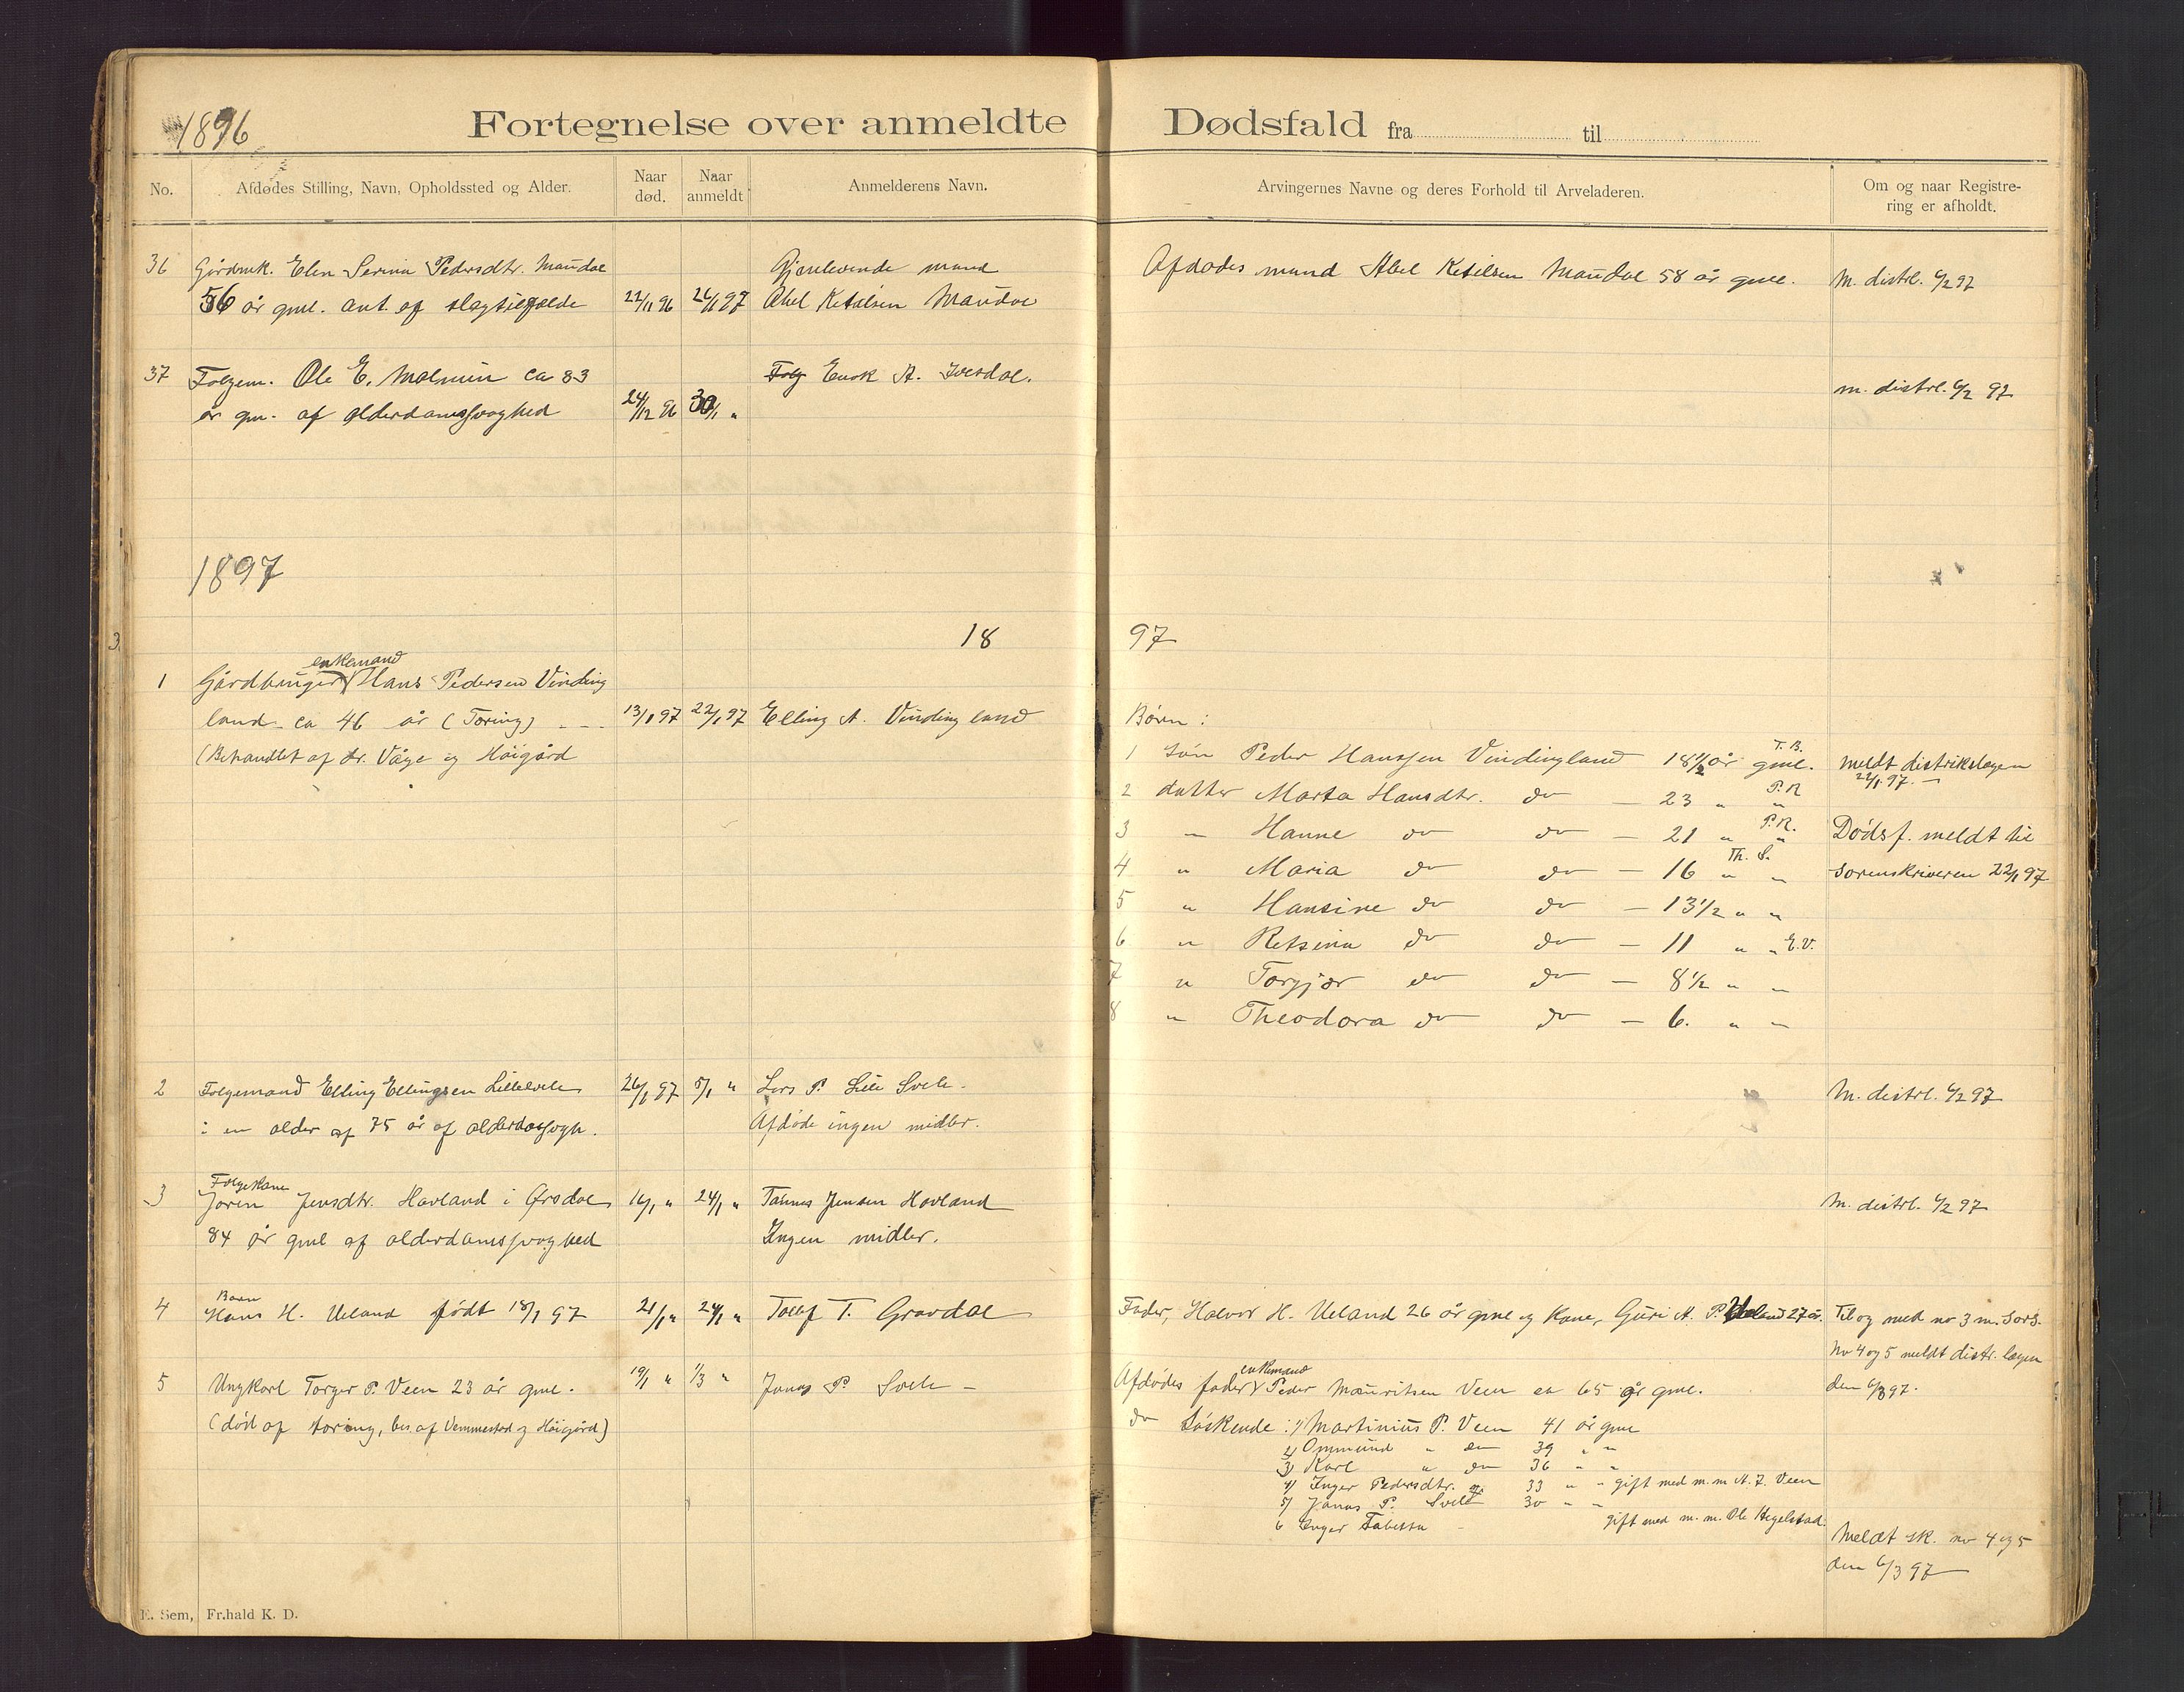 1896
Fortegnelse over anmeldte Dødsfald fra til
No. Afdødes Stilling, Navn, Opholdssted og Alder. Naar død. Naar anmeldt Anmelderens Navn. Arvingernes Navne og deres Forhold til Arveladeren. Om og naar Registrering er afholdt.
36 Gårdmk. Elen Serina Pedersdtr. Maudal
56 år gml. ant. af slagtilfælde 22/11 96 26/1 97
Gjenlevende mand
Abel Ketelsen Maudal
Afdødes mand Abel Ketelsen Maudal 58 år gml.
M. distrl. 6/2 97
37 Folgem. Ole E. Malmin ca 83
år gm. af alderdamssvaghed 24/12 96 30/1 "
Enok A. Ivesdal.
m. distrl. 6/2 97
1897
18 97
enkemand
1 Gårdbruger Hans Pedersen Vinding
land ca 46 år (Tæring) 13/1 97 22/1 97 Elling A. Vindingland
(Behandlet af dr. Våge og Höigård
Börn:
1 Sön Peder Hanssen Vindingland 18 1/2 år gml. T. B.
2 datter Marta Hansdtr. do — 23 " " P. R
3 — Hanne do do — 21 " " P. R.
4 " Maria do do — 16 " " Th. S.
5 " Hansine do do — 13 1/2 " "
6 " Retsina do do — 11 " " E. V.
7 " Torgjær do do — 8 1/2 " "
8 " Theodora do do — 6. " "
meldt distrikslægen
22/1 97. —
Dödsf. meldt til
Sorenskriveren 22/1 97
2 Folgemand Elling Ellingsen Lillesvele 26/1 97 5/1 " Lars P. Lille Svele.
i en alder af 75 år af Afdöde ingen midler.
M. distrl. 6/2 97
Folgekone
3 Joren Jensdtr. Hovland i Ørsdal 16/1 " 24/1 " Tønnes Jensen Hovland
84 år gml af alderdamssvaghed Ingen midler.
M. distrl. 6/2 97
Barn
4 Hans H. Ueland född 18/1 97 21/1 " 24/1 " Tollef T. Gravdal
Fader, Halvor H. Ueland 26 år gml og Kone, Guri A. P. Ueland 27 år.
Til og med no 3 m. Sors.
No 4 og 5 meldt distr. lægen
den 6/3 97.
5 Ungkarl Torger P. Veen 23 år gml. 19/1 " 1/3 " Jonas P. Svele —
(död af tæring, beh af Vemmestad og Höigård)
enkemand
Afdödes fader Peder Mauritsen Veen ca 65 år gml.
do Söskende: 1/ Martinius P. Veen 41 år gml
2/ Ommund " do 39 " "
3/ Karl " do 36 " "
4/ Inger Pedersdtr. do 33 " " gift med m. m A. J. Veen
5/ Jonas P. Svele 30 " "
6 Inger Tabetta — gift med m. m. Ole Hegelstad.
Meldt sk. no 4 og 5
den 6/3 97
E. Sem, Fr.hald K. D.